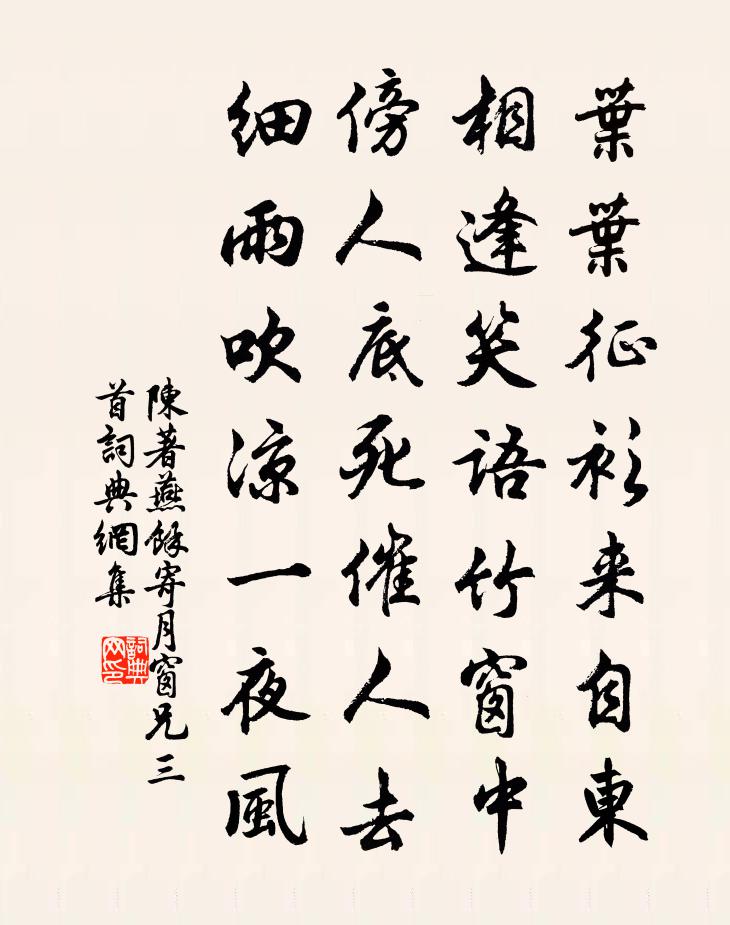 葉葉征衫来自東
相逢笑語竹窗中
傍人底死催人去
細雨吹涼一夜風
陳著燕餘寄月窗兄三
首詞典網集
詞典網印